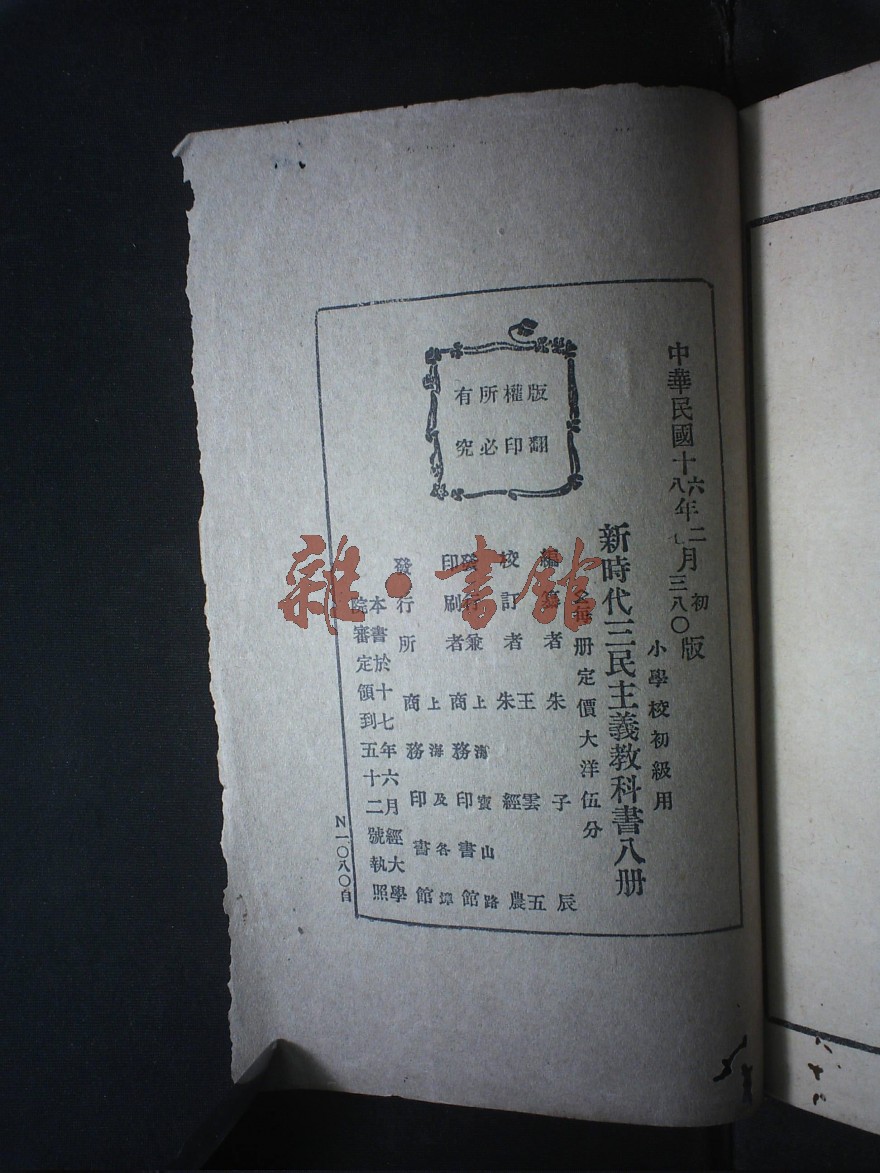 中華民國十六八年二七月初三八〇版
小學校初級用
新時代三民主義教科書八册
每册定價大洋伍分
編纂者 朱子辰
校訂者 王雲五
朱經農
發行兼
印刷者
上海寶山路
商務印書館
發行所
上海及各埠
商務印書館
本書於十七年六月經大學
院審定領到五十二號執照
版權所有
翻印必究
N一〇八〇自
雜·書館